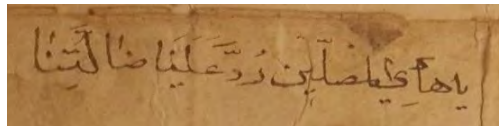 يا هادي المضلين رُدَّ عَلَينَا ضالَّتِنا